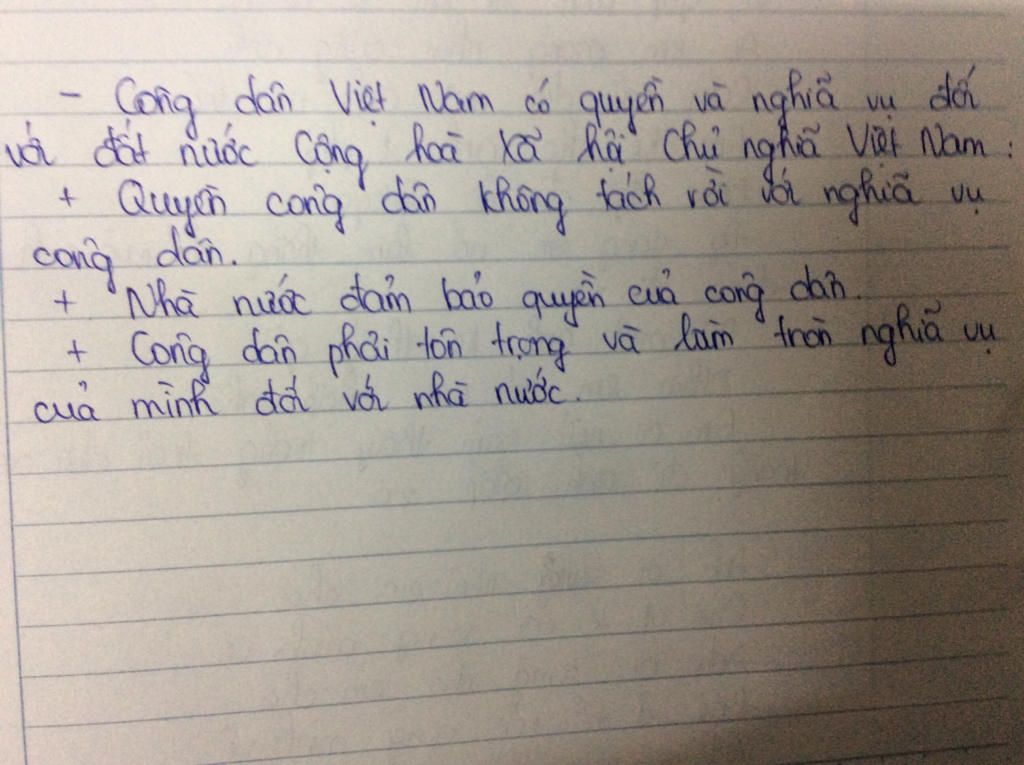 - Công dân Việt Nam có quyền và nghĩa vụ đối
với đất nước Cộng hoà Xã hội Chủ nghĩa Việt Nam:
+ Quyền công dân không tách rời với nghĩa vụ
công dân.
+ Nhà nước đảm bảo quyền của công dân.
+ Công dân phải tôn trọng và làm tròn nghĩa vụ
của mình đối với nhà nước.